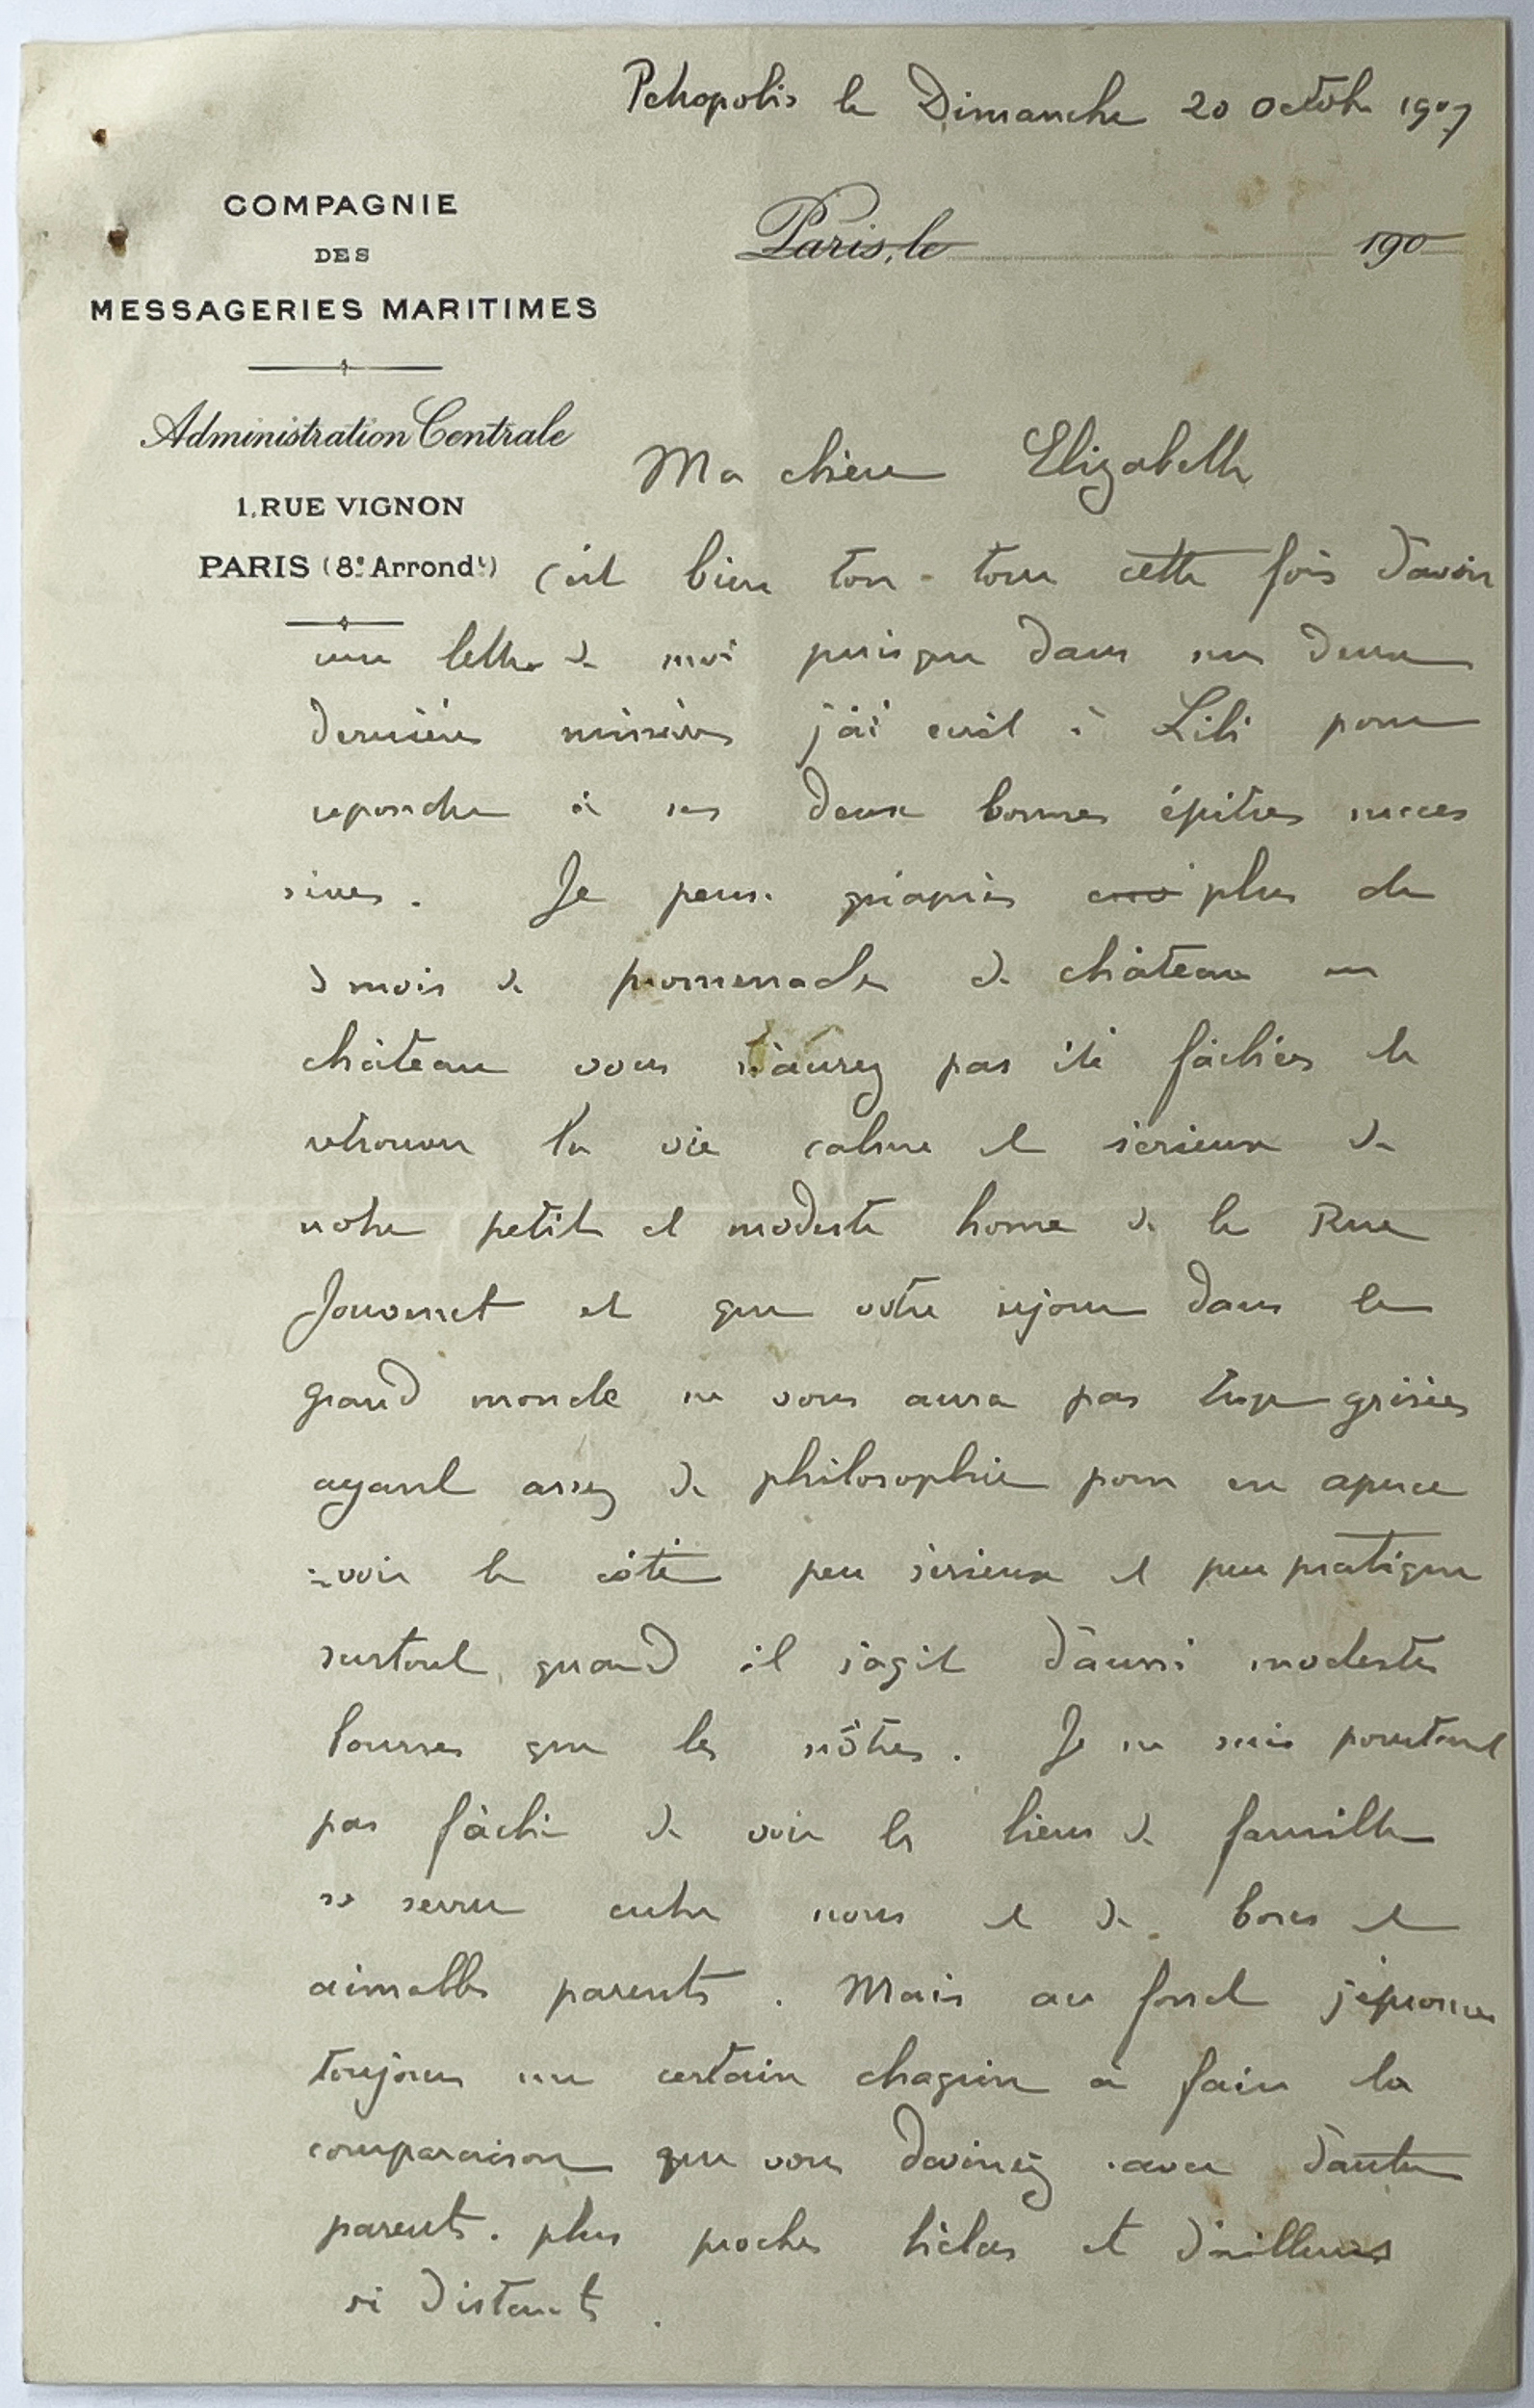 Petropolis le Dimanche 20 Octobre 1907
COMPAGNIE
DES
MESSAGERIES MARITIMES
Administration Centrale
1, RUE VIGNON
PARIS (8e. Arrondt.)
Paris, le 190
Ma chère Elizabeth
C'est bien ton tour cette fois d'avoir
une lettre de moi puisque dans mes deux
dernières missives j'ai écrit à Lili pour
repondre à ses deux bonnes épitres succes
sives. Je pense qu'après plus de
3 mois de promenades de château en
château vous n'aurez pas été fâchées de
retrouver la vie calme et sérieuse de
notre petit et modeste home de la Rue
Jouvenet et que votre sejour dans le
grand monde ne vous aura pas trop grisées
ayant assez de philosophie pour en aperce
=voir le côté peu sérieux et peu pratique
surtout quand il s'agit d'aussi modestes
bourses que les nôtres. Je ne suis pourtant
pas fâché de voir les liens de famille
se serrer entre nous et de bons et
aimables parents. Mais au fond j'éprouve
toujours un certain chagrin à faire la
comparaison que vous devinez avec d'autres
parents plus proches hélas et d'ailleurs
si distants.